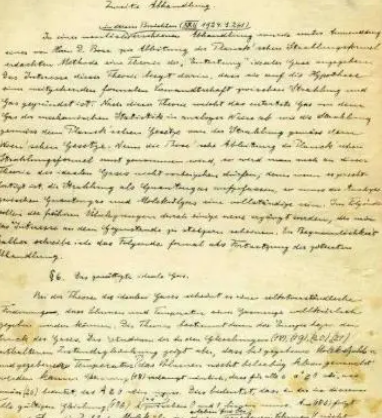 Zweite Abhandlung.
In einer neulich in diesen Berichten (XXII 1924, S. 261) erschienenen Abhandlung wurde unter Anwendung
einer von Herrn D. Bose zur Ableitung der Planck'schen Strahlungsformel
erdachten Methode eine Theorie der „Entartung" idealer Gase angegeben.
Das Interesse dieser Theorie liegt darin, dass sie auf die Hypothese
einer weitgehenden formalen Verwandtschaft zwischen Strahlung und
Gas gegründet ist. Nach dieser Theorie weicht das entartete Gas von dem
Gas der mechanischen Statistik in analoger Weise ab wie die Strahlung
gemäss dem Planck'schen Gesetze von der Strahlung gemäss dem
Wien'schen Gesetze. Wenn die Bose'sche Ableitung der Planck'schen
Strahlungsformel ernst genommen wird, so wird man auch an dieser
Theorie des idealen Gases nicht vorbeigehen dürfen; denn wenn es gerecht-
fertigt ist, die Strahlung als Quantengas aufzufassen, so muss die Analogie
zwischen Quantengas und Molekülgas eine vollständige sein. Im Folgenden
sollen die früheren Überlegungen durch einige neue ergänzt werden, die mir
das Interesse an dem Gegenstande zu steigern scheinen. Der Bequemlichkeit
halber schreibe ich das Folgende formal als Fortsetzung der zitierten
Abhandlung.
§6. Das gesättigte ideale Gas.
Bei der Theorie des idealen Gases scheint es eine selbstverständliche
Forderung, dass Volumen und Temperatur einer Gasmenge willkürlich
gegeben werden können. Die Theorie bestimmt dann die Energie bezw. den
Druck des Gases. Das Studium der in den Gleichungen (18), (19), (20), (21)
enthaltenen Zustandsgleichung zeigt aber, dass bei gegebener Molekülzahl n
und gegebener Temperatur das Volumen nicht beliebig klein gemacht
werden kann.